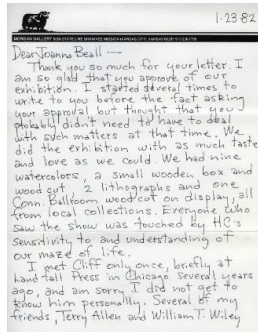 1·23·82
MORGAN GALLERY
Dear Joanna Beall —
Thank you so much for your letter. I
am so glad that you approve of our
exhibition. I started several times to
write to you before the fact asking
your approval but thought that you
probably didn't need to have to deal
with such matters at that time. We
did the exhibition with as much taste
and love as we could. We had nine
watercolors, a small wooden box and
wood cut, 2 lithographs and one
Conn. Ballroom woodcut on display, all
from local collections. Everyone who
saw the show was touched by HC's
sensitivity to and understanding of
our maze of life.
I met Cliff only once, briefly at
Landfall Press in Chicago several years
ago, and am sorry I did not get to
know him personally. Several of my
friends, Terry Allen and William T. Wiley